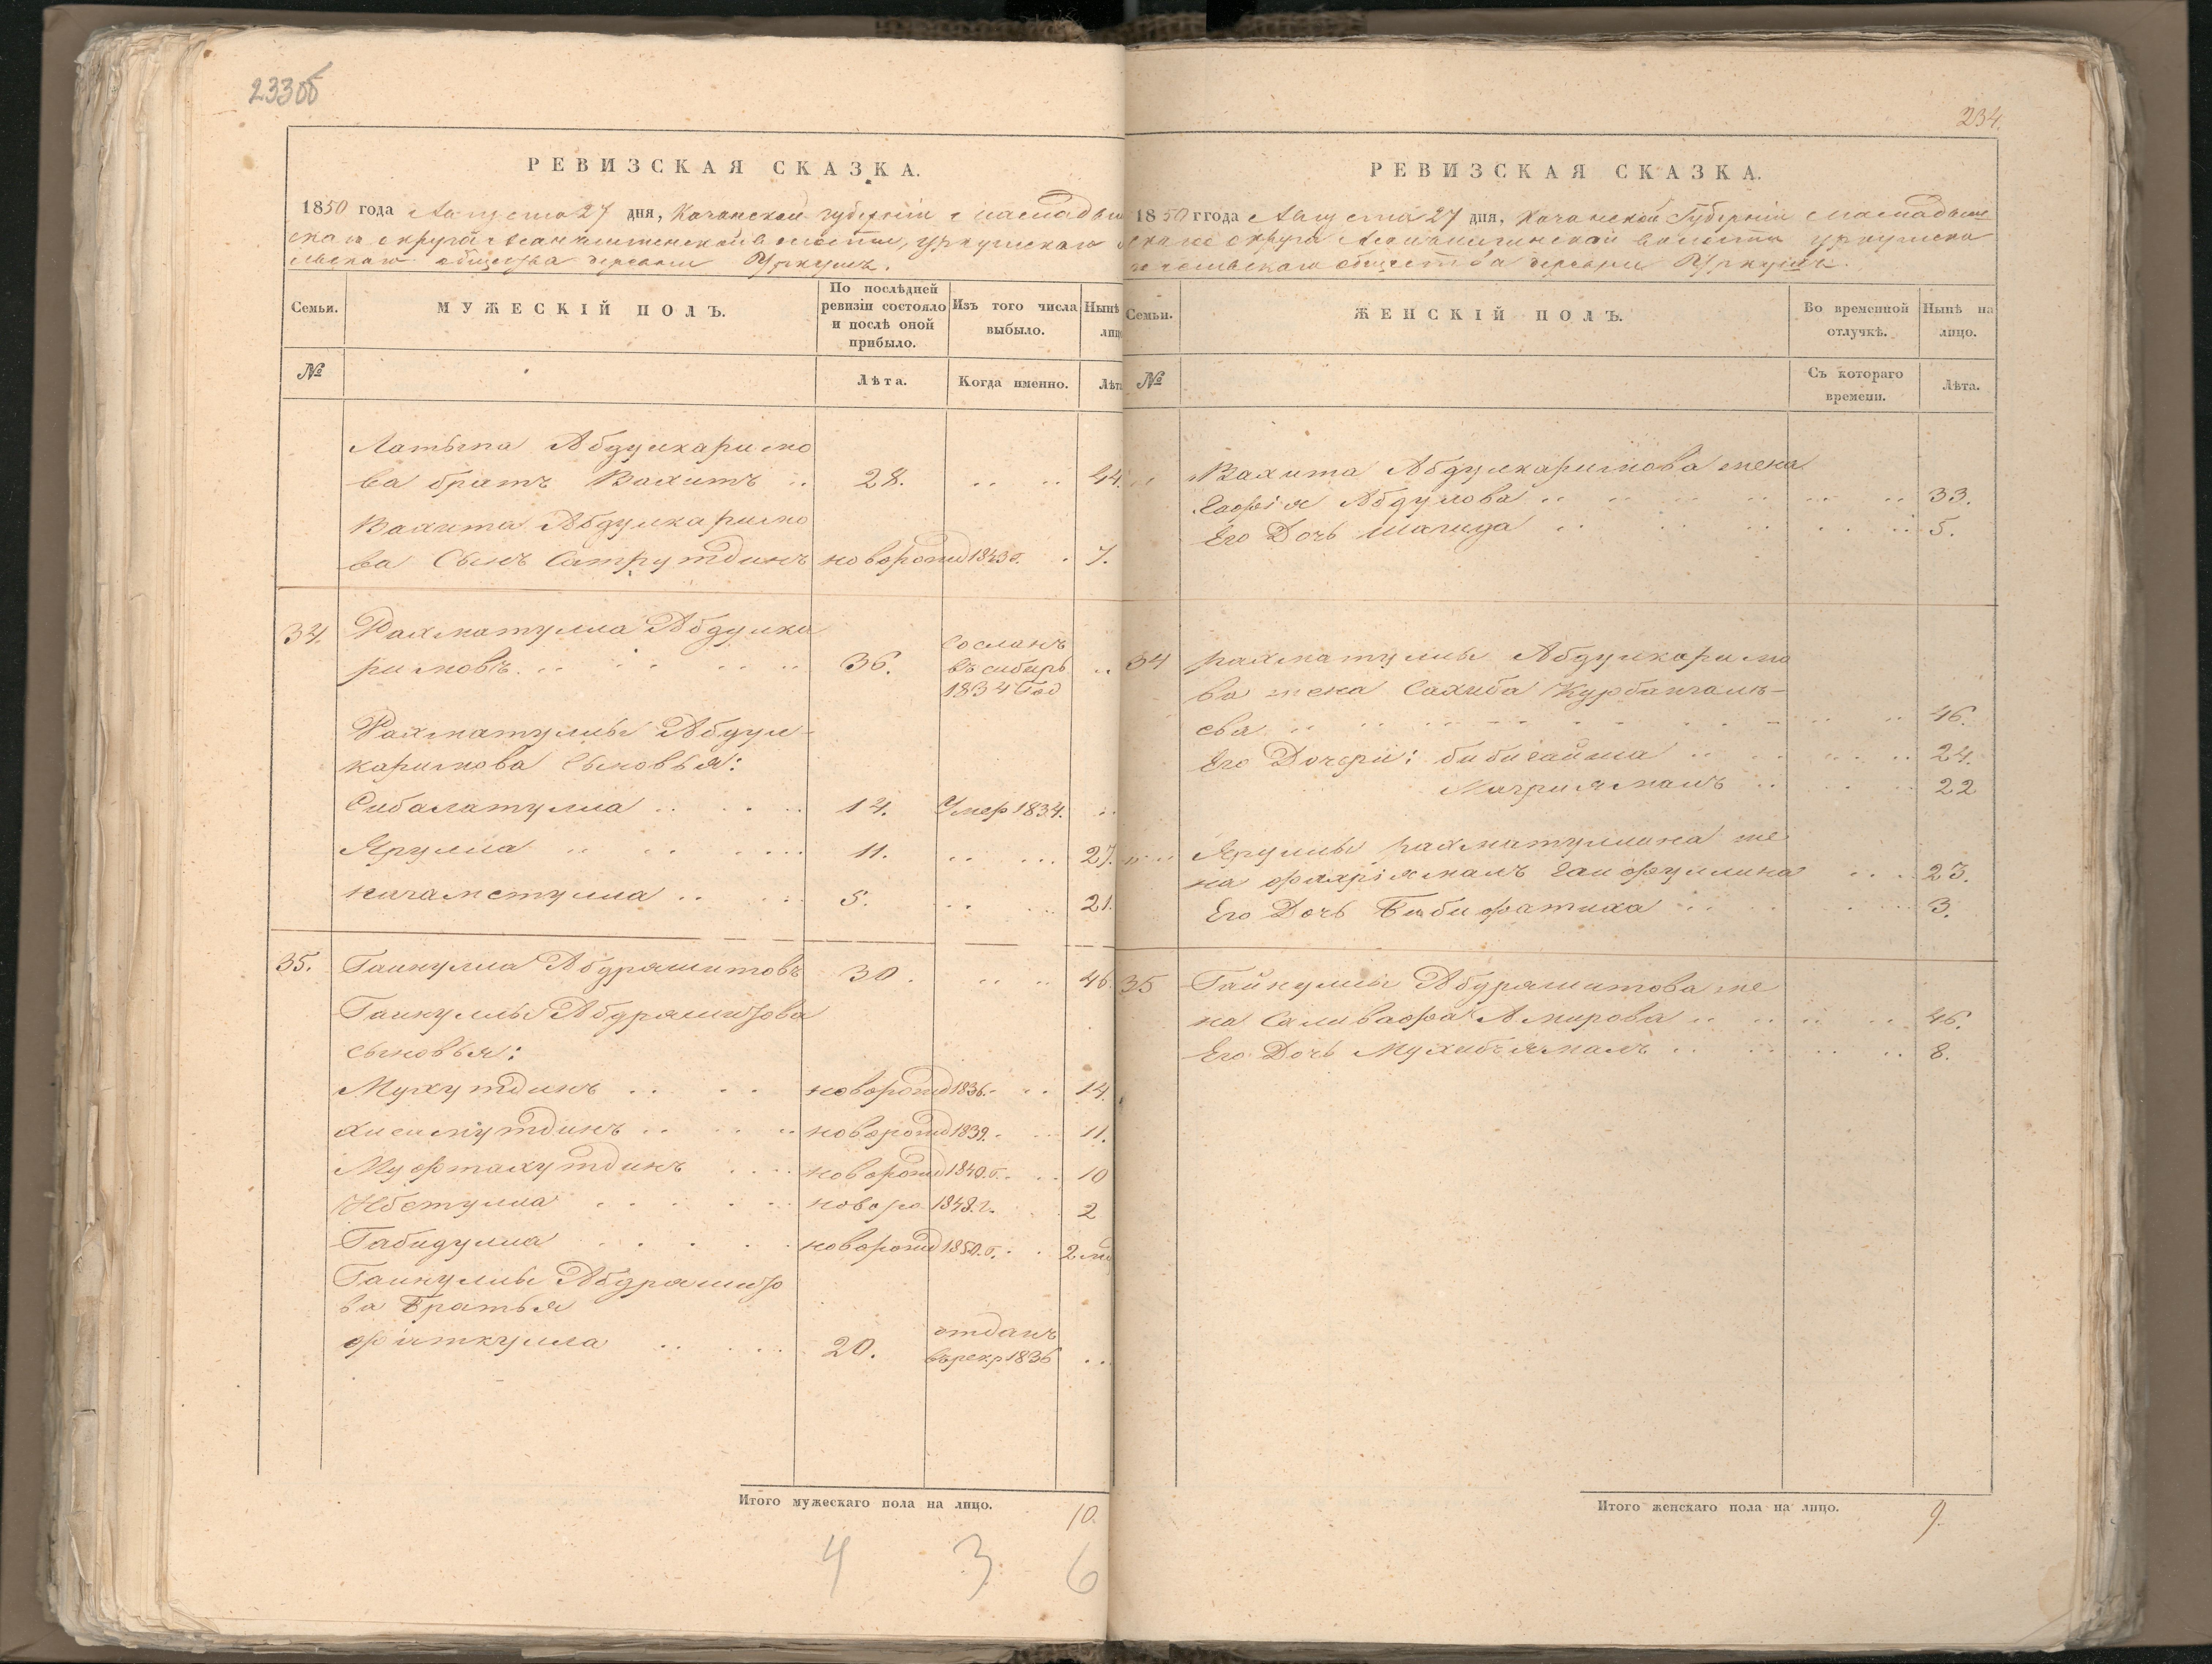 233об
РЕВИЗСКАЯ СКАЗКА.
1850 года Августа 27 дня, Казанской губерніи Мамадыш
скаго округа волости, Уркушскаго
сельскаго общества деревни Уркушъ.
Семьи.
МУЖЕСКІЙ ПОЛЪ.
По послѣдней
ревизіи состояло
и послѣ оной
прибыло.
Изъ того числа
выбыло.
Нынѣ
лицо
№
Лѣта.
Когда именно.
Лѣта
Латыпа Абдулкаримо
ва братъ Вахитъ .. 28. .. .. 44.
Вахита Абдулкаримо
ва Сынъ новорожд 1843 г. . 7.
34. Рахматулла Абдулка
римовъ. .. 36. Сосланъ
въ сибирь
1834 Год ..
Рахматуллы Абдул-
каримова Сыновья:
Сибагатулла .. 14. Умер 1834. ..
Ярулла .. 11. .. ... 27.
нигаметулла .. 5. .. ... 21.
35. Гайнулла Абдряшитовъ 30. .. .. 46.
Гайнуллы Абдряшитова
сыновья:
Мухутдинъ .. новорожд 1836. .. 14.
хисамутдинъ .. новорожд 1839. .. 11.
Муфтахутдинъ .. новорожд 1840. г. .. 10
новоро 1848. г. 2
Габидулла новорожд 1850. г. . 2 м
Гайнуллы Абдряшито
ва Братья
фиткулла .. 20. отданъ
въ рекр 1836 ..
Итого мужескаго пола на лицо. 10.
4 3 6
234.
РЕВИЗСКАЯ СКАЗКА.
1850 года Августа 27 дня, Казанской Губерніи Мамадыш
скаго округа волости Уркушска
го сельскаго общества деревни Уркушъ.
Семьи.
ЖЕНСКІЙ ПОЛЪ.
Во временной
отлучкѣ.
Нынѣ на
лицо.
№
Съ котораго
времени.
Лѣта.
Вахита Абдулкаримова жена
Гафія Абдулова .. .. 33.
Его Дочь Шагида .. .. 5.
34 Рахматуллы Абдулкаримо
ва жена Сахиба Курбангалѣ-
ева .. .. 46.
Его Дочери: бибигайша .. .. 24.
.. 22
Яруллы Рахматуллина же
на фахріямалъ Гайфуллина .. 23.
Его Дочь Бибифатиха .. 3.
35 Гайнуллы Абдряшитова же
на Амирова .. .. 46.
Его Дочь Мухибямалъ .. .. 8.
Итого женскаго пола на лицо. 9.